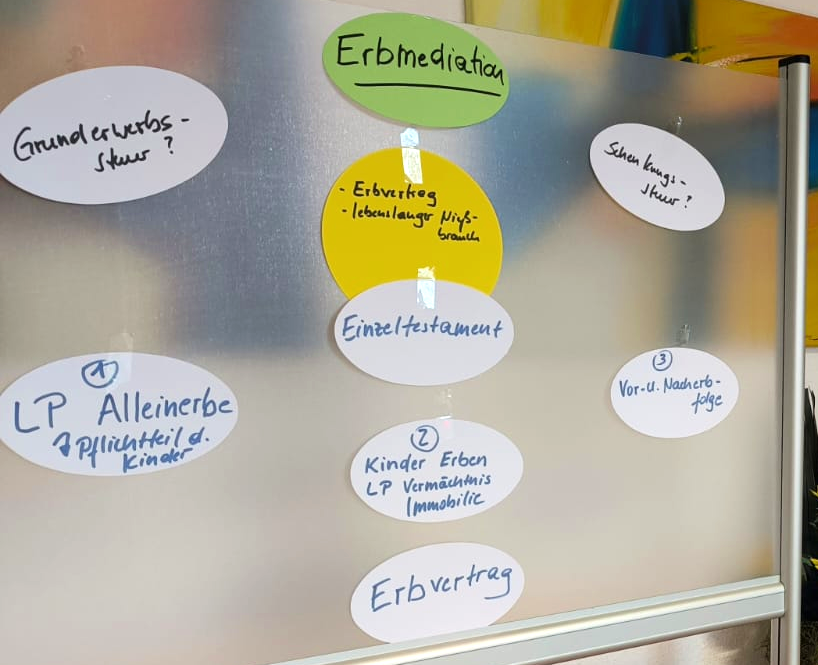 Erbmediation
Grunderwerbs-
steuer ?
- Erbvertrag
- lebenslanger Nieß-
brauch
Schenkungs-
steuer ?
Einzeltestament
1
LP Alleinerbe
Pflichtteil d.
Kinder
2
Kinder Erben
LP Vermächtnis
Immobilie
3
Vor- u. Nacherb-
folge
Erbvertrag